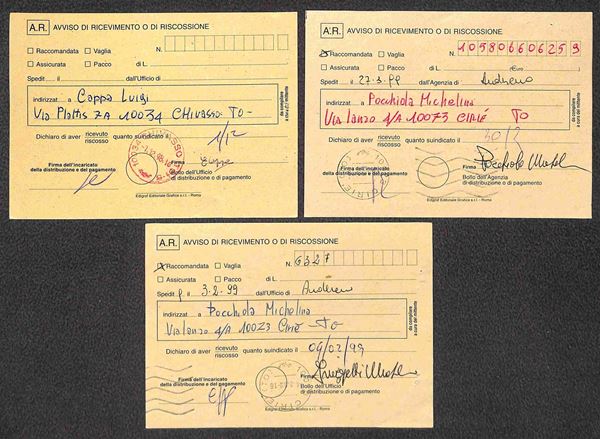 A.R. AVVISO DI RICEVIMENTO O DI RISCOSSIONE
Raccomandata Vaglia N.
Assicurata Pacco di L.
Spedit il dall'Ufficio di
indirizzat a Coppa Luigi
Via Plattis 7A 10034 CHIVASSO - TO -
da compilare a cura del mittente
Dichiaro di aver ricevuto riscosso quanto suindicato il 1/12
Firma dell'incaricato della distribuzione e del pagamento
Firma
Bollo dell'Ufficio di distribuzione o di pagamento
Edigraf Editoriale Grafica s.r.l. - Roma
A.R. AVVISO DI RICEVIMENTO O DI RISCOSSIONE
Raccomandata Vaglia N. 105806606253
Assicurata Pacco di L. (Euro )
Spedit il 27-3-99 dall'Agenzia di
indirizzat a Pocchiola Michelina
Via Lanzo 4/A 10073 CIRIÉ TO
da compilare a cura del mittente
Dichiaro di aver ricevuto riscosso quanto suindicato il
Firma dell'incaricato della distribuzione e di pagamento
Firma
Bollo dell'Agenzia di distribuzione o di pagamento
Edigraf Editoriale Grafica s.r.l. - Roma
A.R. AVVISO DI RICEVIMENTO O DI RISCOSSIONE
Raccomandata Vaglia N. 6327
Assicurata Pacco di L.
Spedit il 3-2-99 dall'Ufficio di
indirizzat a Pocchiola Michelina
Via Lanzo 4/A 10073 Cirié - TO
da compilare a cura del mittente
Dichiaro di aver ricevuto riscosso quanto suindicato il 09/02/99
Firma dell'incaricato della distribuzione e del pagamento
Firma
Bollo dell'Ufficio di distribuzione o di pagamento
Edigraf Editoriale Grafica s.r.l. - Roma